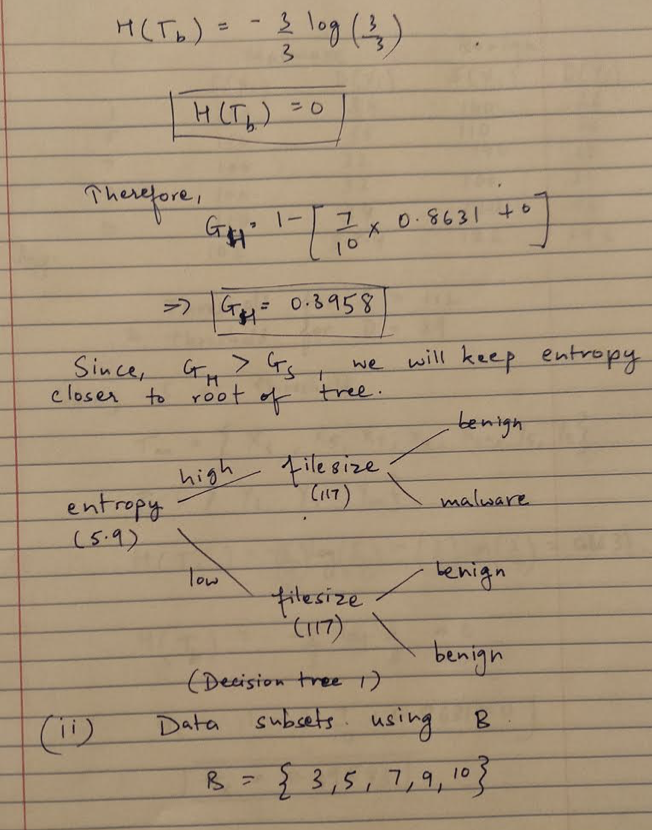 H(T_b) = - 3/3 log(3/3)
H(T_b) = 0
Therefore,
G_H = 1 - [7/10 × 0.8631 + 0]
=> G_H = 0.3958
Since, G_H > G_S, we will keep entropy
closer to root of tree.
benign
high filesize
(117)
entropy malware
(5.9)
low benign
filesize
(117)
benign
(Decision tree 1)
(ii) Data subsets using B
B = { 3, 5, 7, 9, 10}